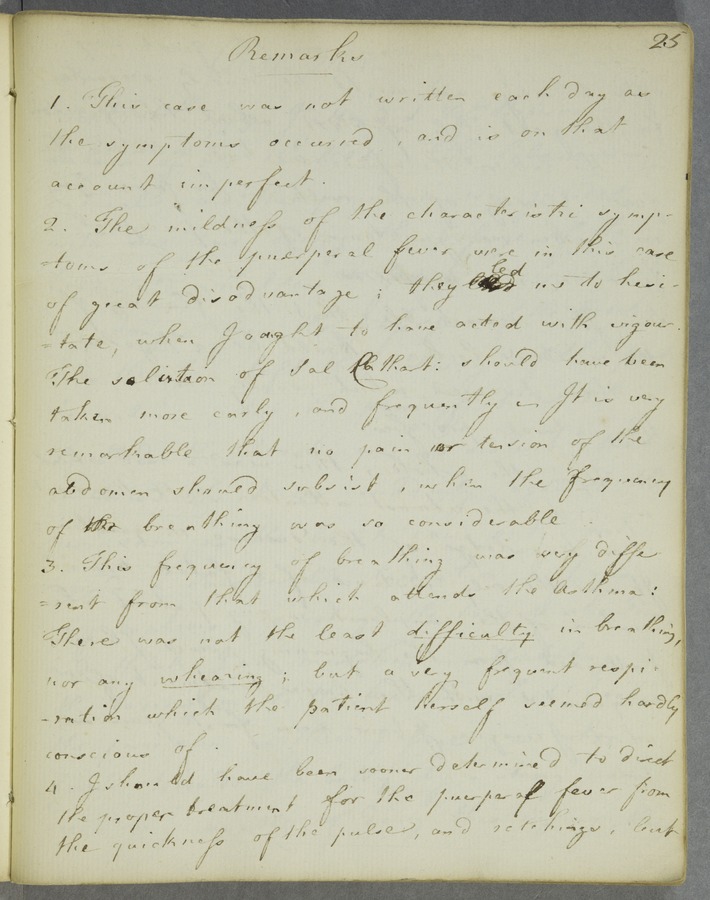 25
Remarks
1. This case was not written each day as
the symptoms occurred, and is on that
account imperfect.
2. The mildness of the characteristic symp-
-toms of the puerperal fever were in this case
of great disadvantage; they led me to hesi-
-tate, when I ought to have acted with vigour.
The solution of Sal Cathat: should have been
taken more early, and frequently It is very
remarkable that no pain or tension of the
abdomen should subsist, when the frequency
of the breathing was so considerable.
3. This frequency of breathing was very diffe
-rent from that which attends the Asthma:
There was not the least difficulty in breathing,
nor any wheazing; but a very frequent respi-
-ration which the patient herself seemed hardly
conscious of.
4. I should have been sooner determined to direct
the proper treatment for the puerperal fever from
the quickness of the pulse, and retchings, but